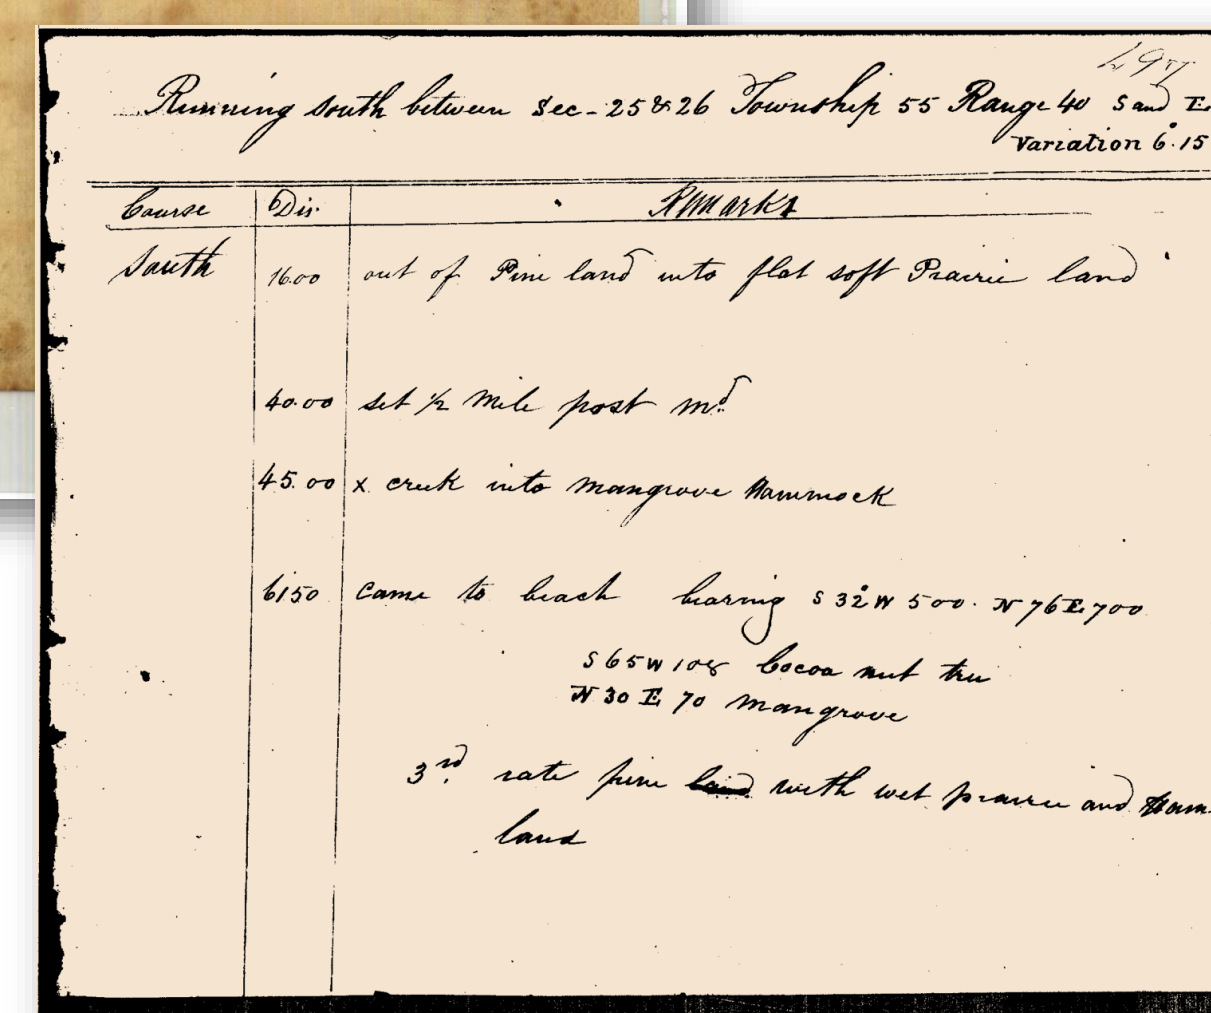 Running South between Sec - 25 & 26 Township 55 Range 40 S and E
Variation 6°.15
Course Dis. Remarks
South 16.00 out of Pine land into flat soft Prairie land
40.00 set 1/2 Mile post Md.
45.00 x creek into Mangrove Hammock
6150 Came to beach bearing S 32° W 500. N 76 E 700
S 65 W 108 Cocoa nut tree
N 30 E 70 Mangrove
3rd. rate pine land with wet prairie and Ham
land